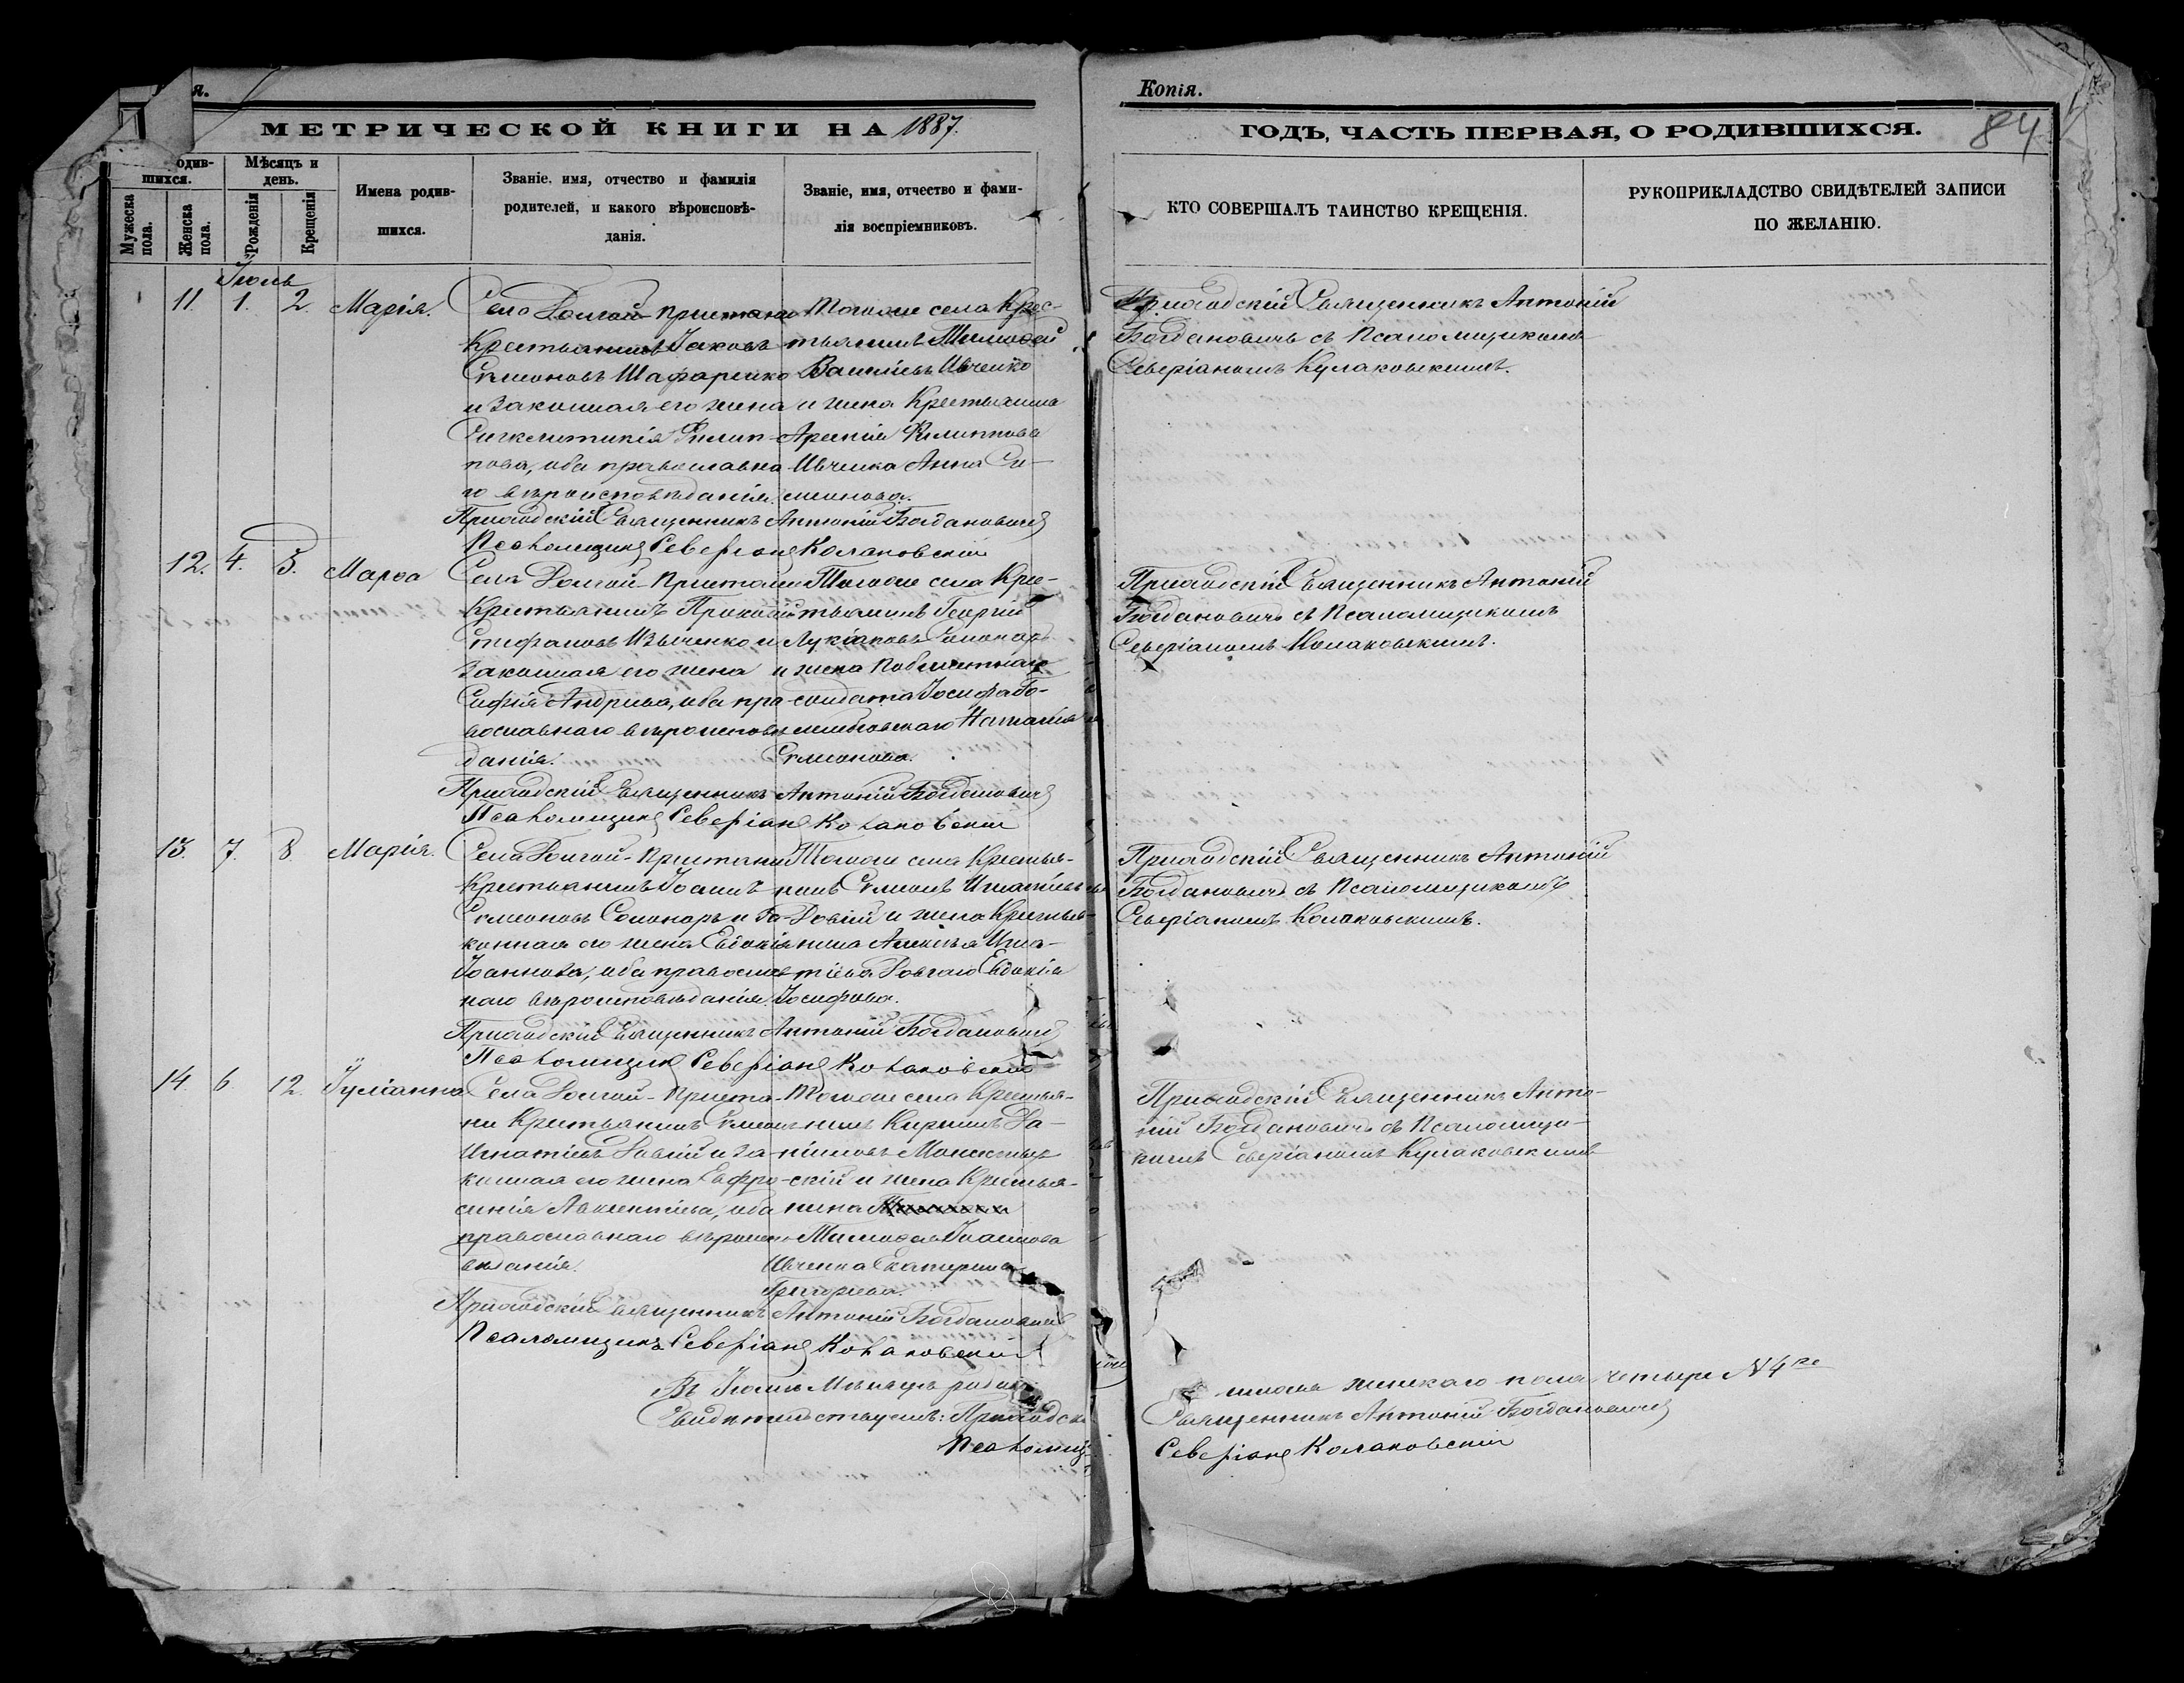 Копія.
МЕТРИЧЕСКОЙ КНИГИ НА 1887.
ГОДЪ, ЧАСТЬ ПЕРВАЯ, О РОДИВШИХСЯ.
84
одив-
шихся.
Мужеска пола.
Женска пола.
Мѣсяцъ и день.
Рожденія
Крещенія
Имена родив-
шихся.
Званіе, имя, отчество и фамилія
родителей, и какого вѣроисповѣ-
данія.
Званіе, имя, отчество и фами-
лія воспріемниковъ.
КТО СОВЕРШАЛЪ ТАИНСТВО КРЕЩЕНІЯ.
РУКОПРИКЛАДСТВО СВИДѢТЕЛЕЙ ЗАПИСИ
ПО ЖЕЛАНІЮ.
11. 1. 2. Марія.
Села Долгой-Пристани
Крестьянинъ Іаковъ
Сѵмеоновъ Шафаренко
и законная его жена
Филип-
пова, оба православна
го вѣроисповѣданія.
Тогоже села Крес-
тьянинъ Тимоѳей
Василіевъ Ивченко
и жена Крестьянина
Арсенія Филиппова
Ивченка Анна Си-
меонова.
Приходскій Священникъ Антоній
Богдановичъ съ Псаломщикомъ
Северіаномъ Кулаковскимъ.
Приходскій Священникъ Антоній Богдановичъ
Псаломщикъ Северіанъ Колаковскій
12. 4. 5. Марѳа
Села Долгой-Пристани
Крестьянинъ Прокопій
Стефановъ и
законная его жена
Софія Андреева, оба пра-
вославнаго вѣроисповѣ-
данія.
Тогоже села Крес-
тьянинъ Георгій
Лукіановъ Солонарь
и жена
солдата Іосифа
Наталія
Сѵмеонова.
Приходскій Священникъ Антоній
Богдановичъ съ Псаломщикомъ
Северіаномъ Колаковскимъ.
Приходскій Священникъ Антоній Богдановичъ
Псаломщикъ Северіанъ Колаковскій
13. 7. 8. Марія.
Села Долгой-Пристани
Крестьянинъ Іоаннъ
Сѵмеоновъ Солонарь и за-
конная его жена Евдокія
Іоаннова, оба православ-
наго вѣроисповѣданія.
Тогоже села Крестья-
нинъ Сѵмеонъ Игнатіевъ
Довгій и жена Крестья-
нина Алексѣя Игна-
тіева Довгаго Евдокія
Іосифова.
Приходскій Священникъ Антоній
Богдановичъ съ Псаломщикомъ
Северіаномъ Колаковскимъ.
Приходскій Священникъ Антоній Богдановичъ
Псаломщикъ Северіанъ Колаковскій
14 6. 12. Іуліанна
Села Долгой-Приста-
ни Крестьянинъ Сѵмеонъ
Игнатіевъ Довгій и за-
конная его жена Евфро-
синія Авксентіева, оба
православнаго вѣроиспо-
вѣданія.
Тогоже села Крестья-
нинъ Кириллъ Да-
ніиловъ Монастыр
скій и жена Крестья-
нина
Тимоѳея Іоаннова
Ивченка Екатерина
Григоріева.
Приходскій Священникъ Анто-
ній Богдановичъ съ Псаломщи-
комъ Северіаномъ Кулаковскимъ
Приходскій Священникъ Антоній Богдановичъ
Псаломщикъ Северіанъ Колаковскій
женскаго пола четыре № 4ре
Свидѣтельствуемъ: Приходск
Священникъ Антоній Богдановичъ
Псаломщ
Северіанъ Колаковскій